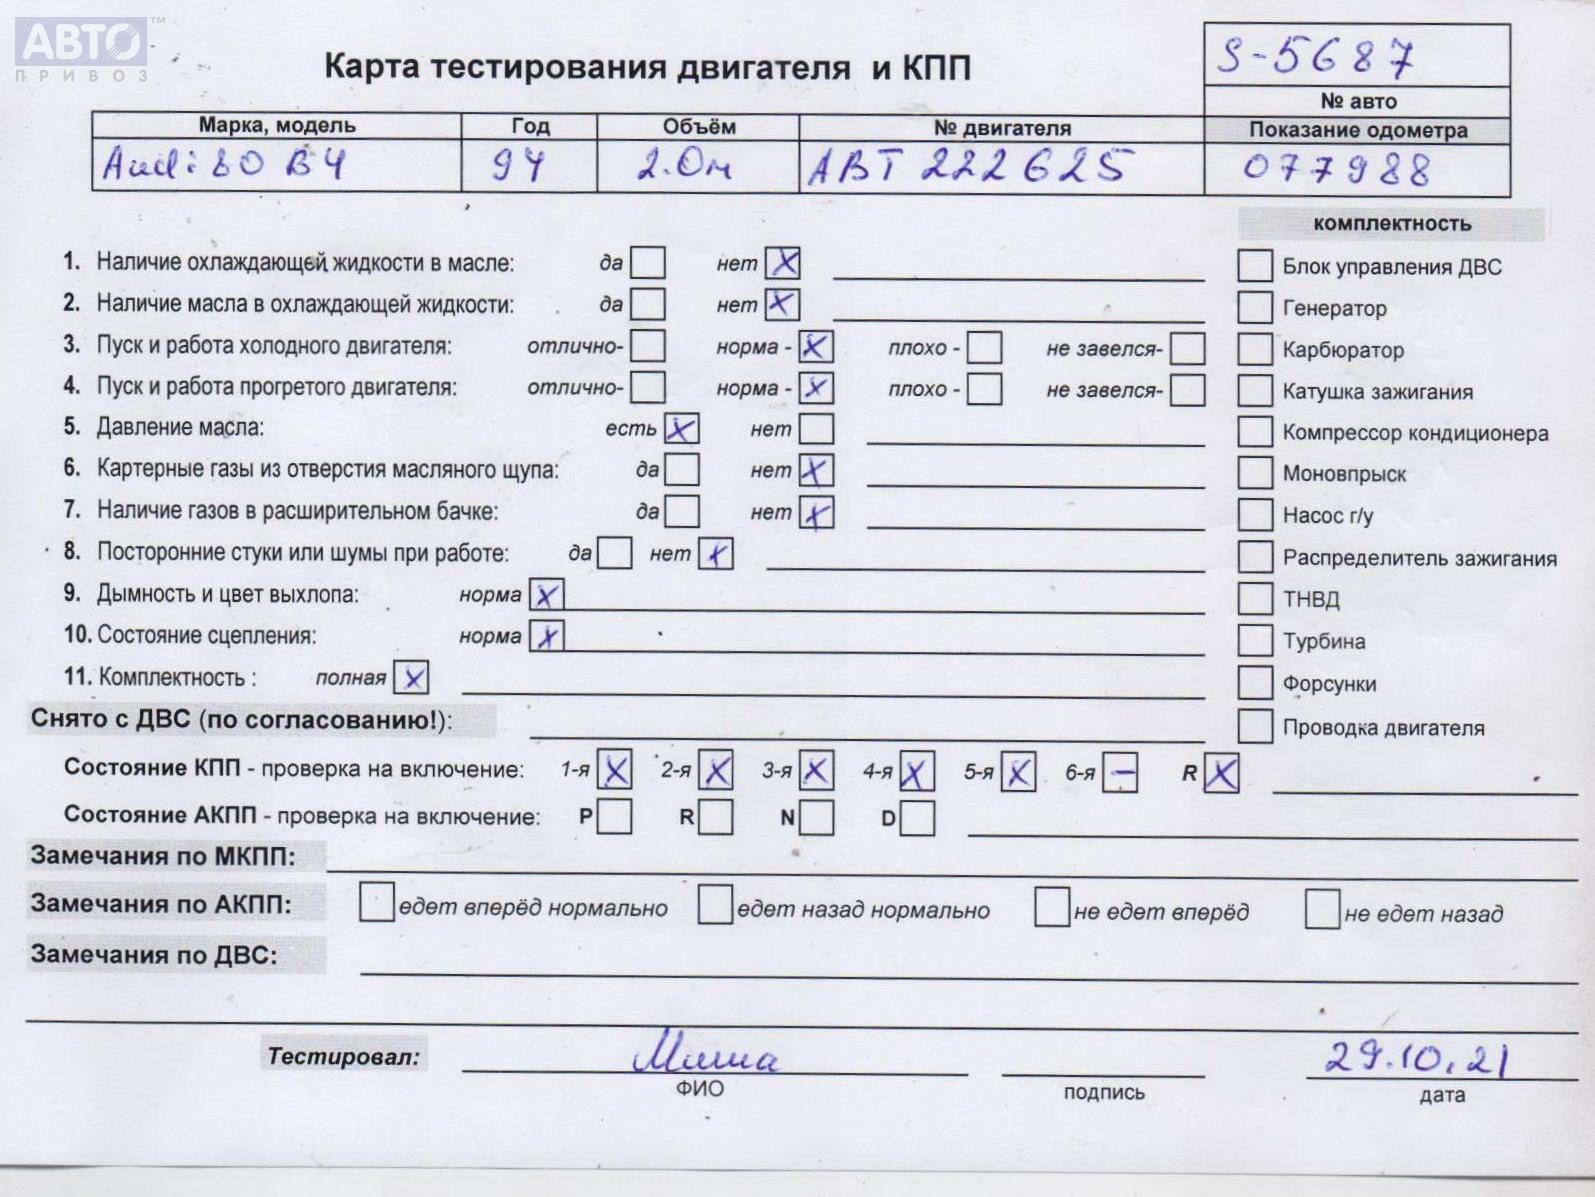 АВТО™
ПРИВОЗ
Карта тестирования двигателя и КПП
S-5687
№ авто
Марка, модель Год Объём № двигателя Показание одометра
Audi 80 B4 94 2.0м ABT 222625 077988
комплектность
1. Наличие охлаждающей жидкости в масле: да нет X
2. Наличие масла в охлаждающей жидкости: да нет X
3. Пуск и работа холодного двигателя: отлично- норма - X плохо - не завелся-
4. Пуск и работа прогретого двигателя: отлично- норма - X плохо - не завелся-
5. Давление масла: есть X нет
6. Картерные газы из отверстия масляного щупа: да нет X
7. Наличие газов в расширительном бачке: да нет X
8. Посторонние стуки или шумы при работе: да нет X
9. Дымность и цвет выхлопа: норма X
10. Состояние сцепления: норма X
11. Комплектность : полная X
Блок управления ДВС
Генератор
Карбюратор
Катушка зажигания
Компрессор кондиционера
Моновпрыск
Насос г/у
Распределитель зажигания
ТНВД
Турбина
Форсунки
Проводка двигателя
Снято с ДВС (по согласованию!):
Состояние КПП - проверка на включение: 1-я X 2-я X 3-я X 4-я X 5-я X 6-я — R X
Состояние АКПП - проверка на включение: P R N D
Замечания по МКПП:
Замечания по АКПП: едет вперёд нормально едет назад нормально не едет вперёд не едет назад
Замечания по ДВС:
Тестировал: Миша 29.10.21
ФИО подпись дата